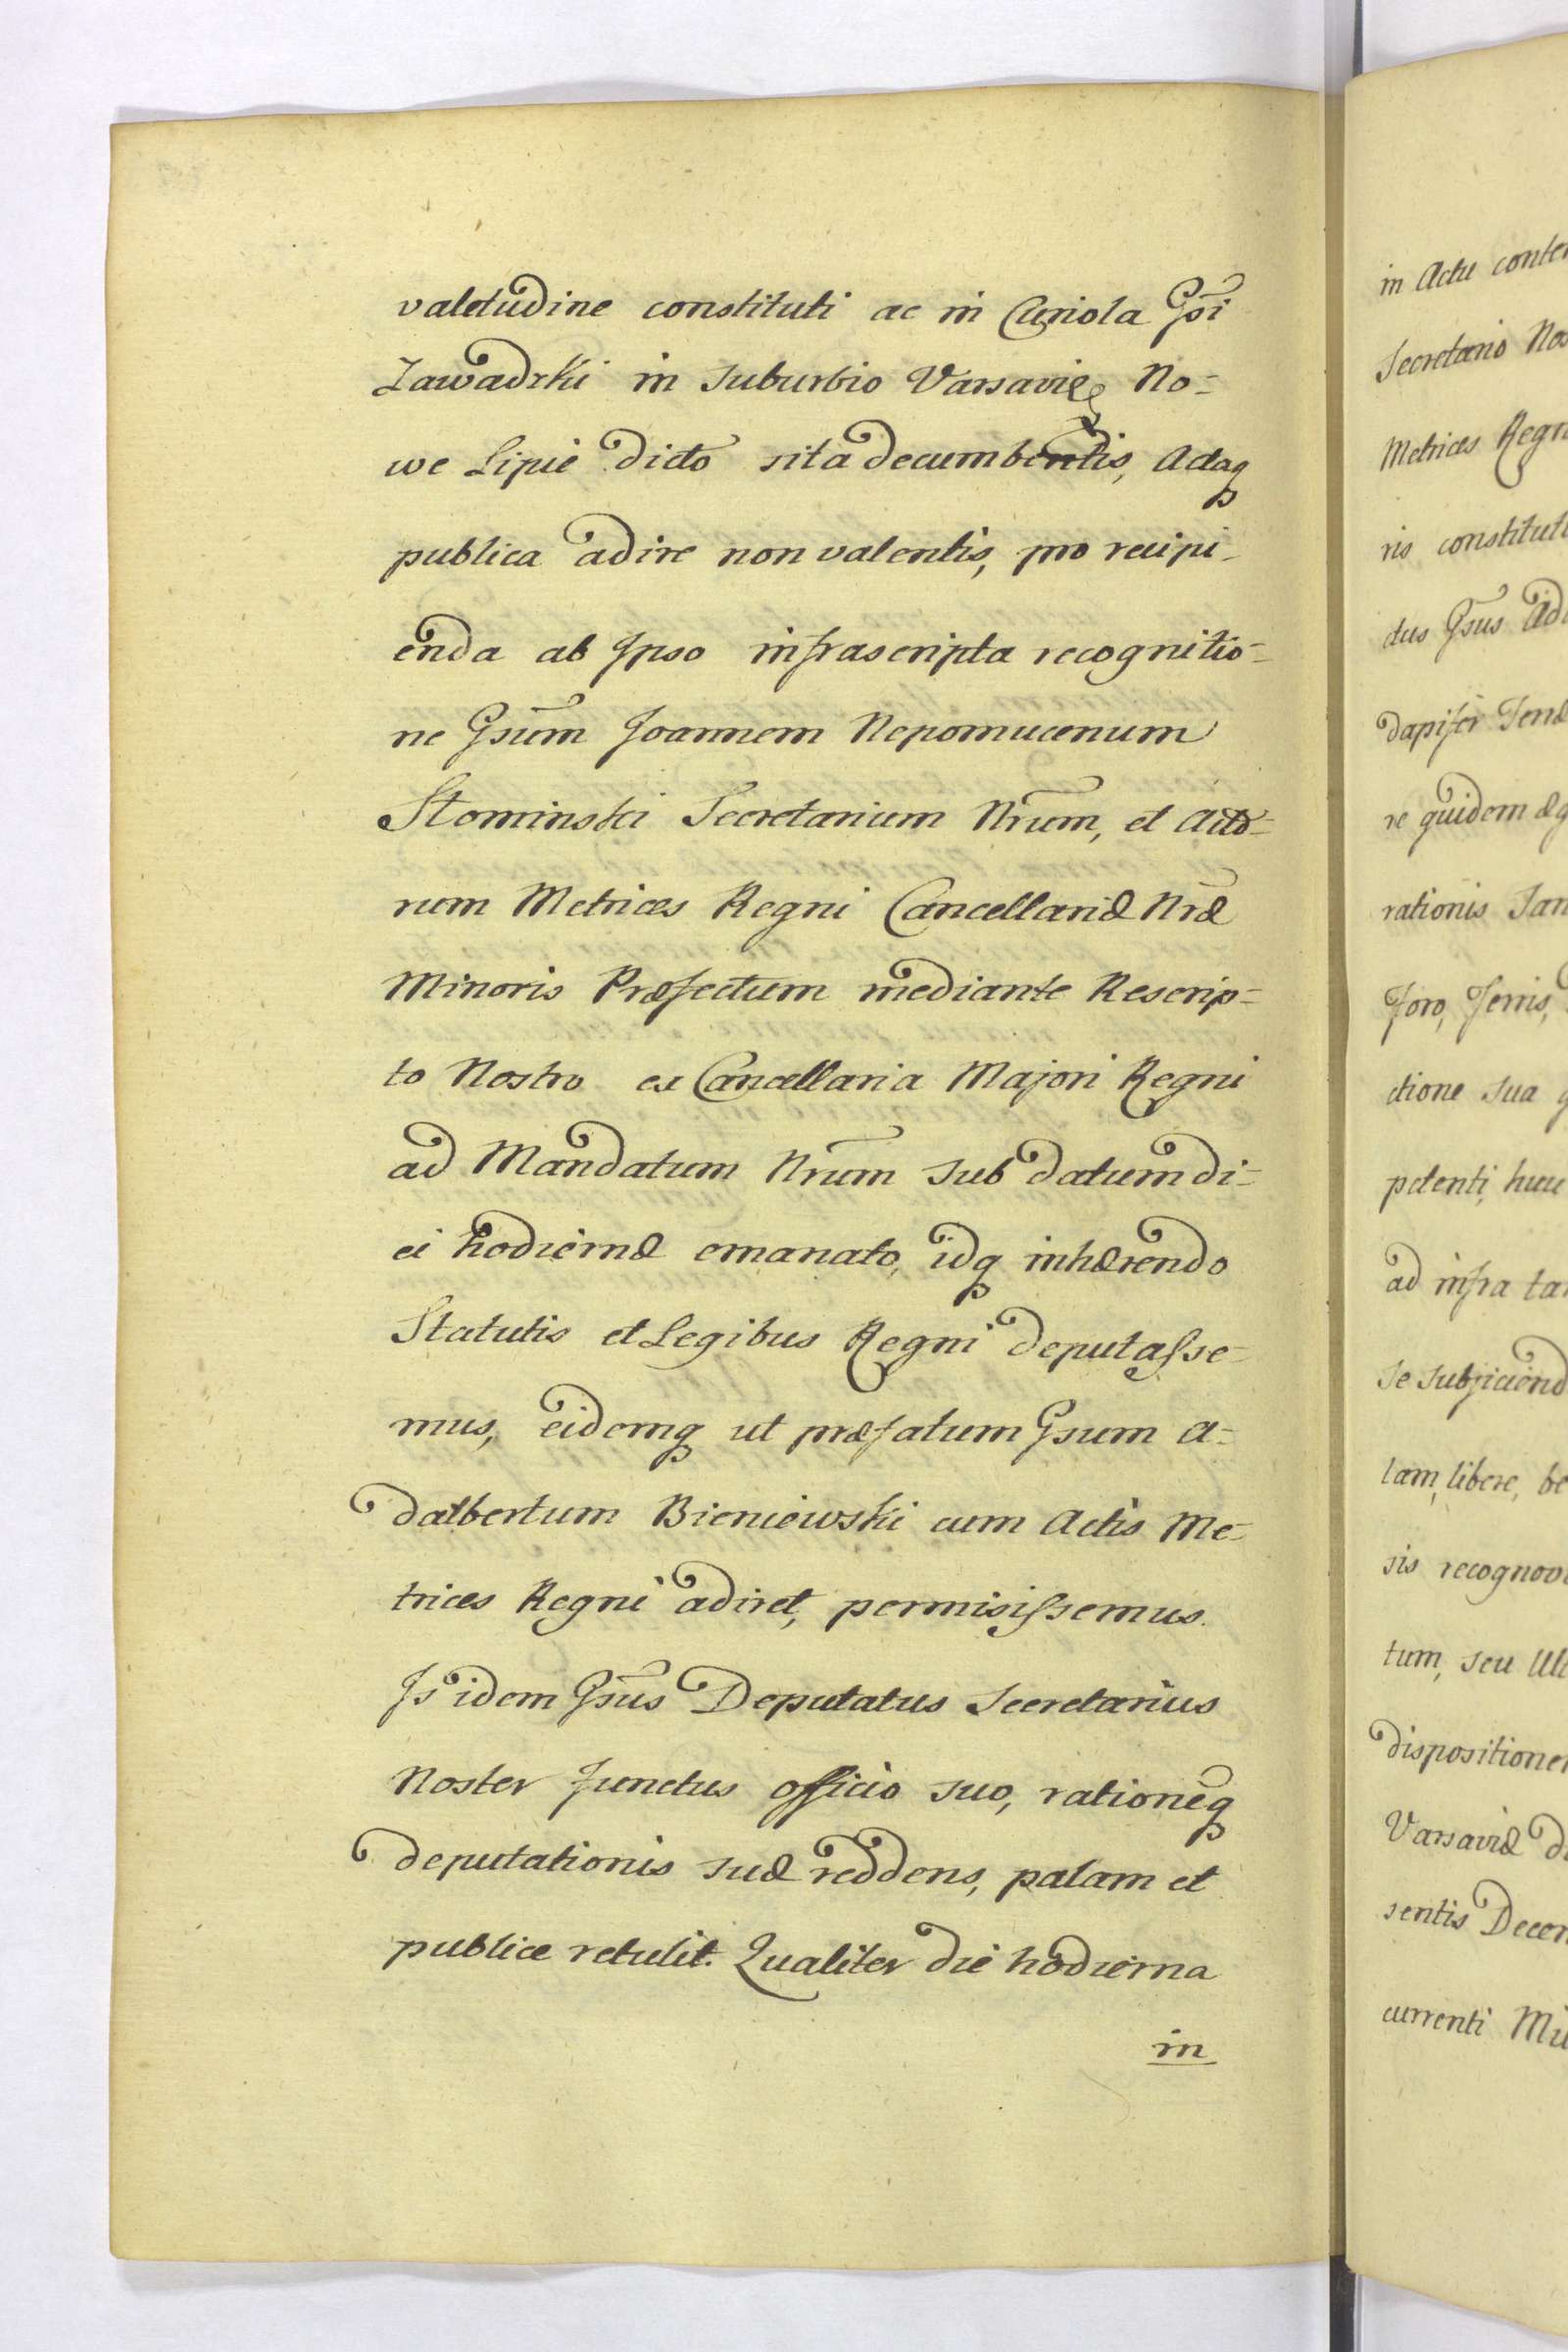 valetudine constituti ac in Curiola Gsi
Zawadzki in Suburbio Varsaviæ No=
we Lipie dicto sita decumbentis, Actaq
publica adire non valentis, pro recipi-
enda ab Ipso infrascripta recognitio=
ne Gsum Joannem Nepomucenum
Słominski Secretarium Nrum, et Acto=
rum Metrices Regni Cancellariæ Nræ
Minoris Præfectum mediante Rescrip=
to Nostro ex Cancellaria Majori Regni
ad Mandatum Nrum sub datum di=
ei hodiernæ emanato, idq inhærendo
Statutis et Legibus Regni deputasse-
mus, eidemq ut præfatum Gsum A=
dalbertum Bieniewski cum Actis Me-
trices Regni adiret, permisissemus.
Is idem Gsus Deputatus Secretarius
Noster functus officio suo, rationeq
deputationis suæ reddens, palam et
publice retulit. Qualiter die hodierna
in
in Actu conten
Secretario Nos
Metrices Regn
ris constituti
ctus Gsus Ad
dapifer Tend
re quidem æg
rationis San
Foro, Terris,
ctione sua q
petenti, huic
ad infra ta
se subjiciend
lam, libere, be
sis recognovi
tum, seu Ul
dispositione
Varsaviæ d
sentis Decem
currenti Mi